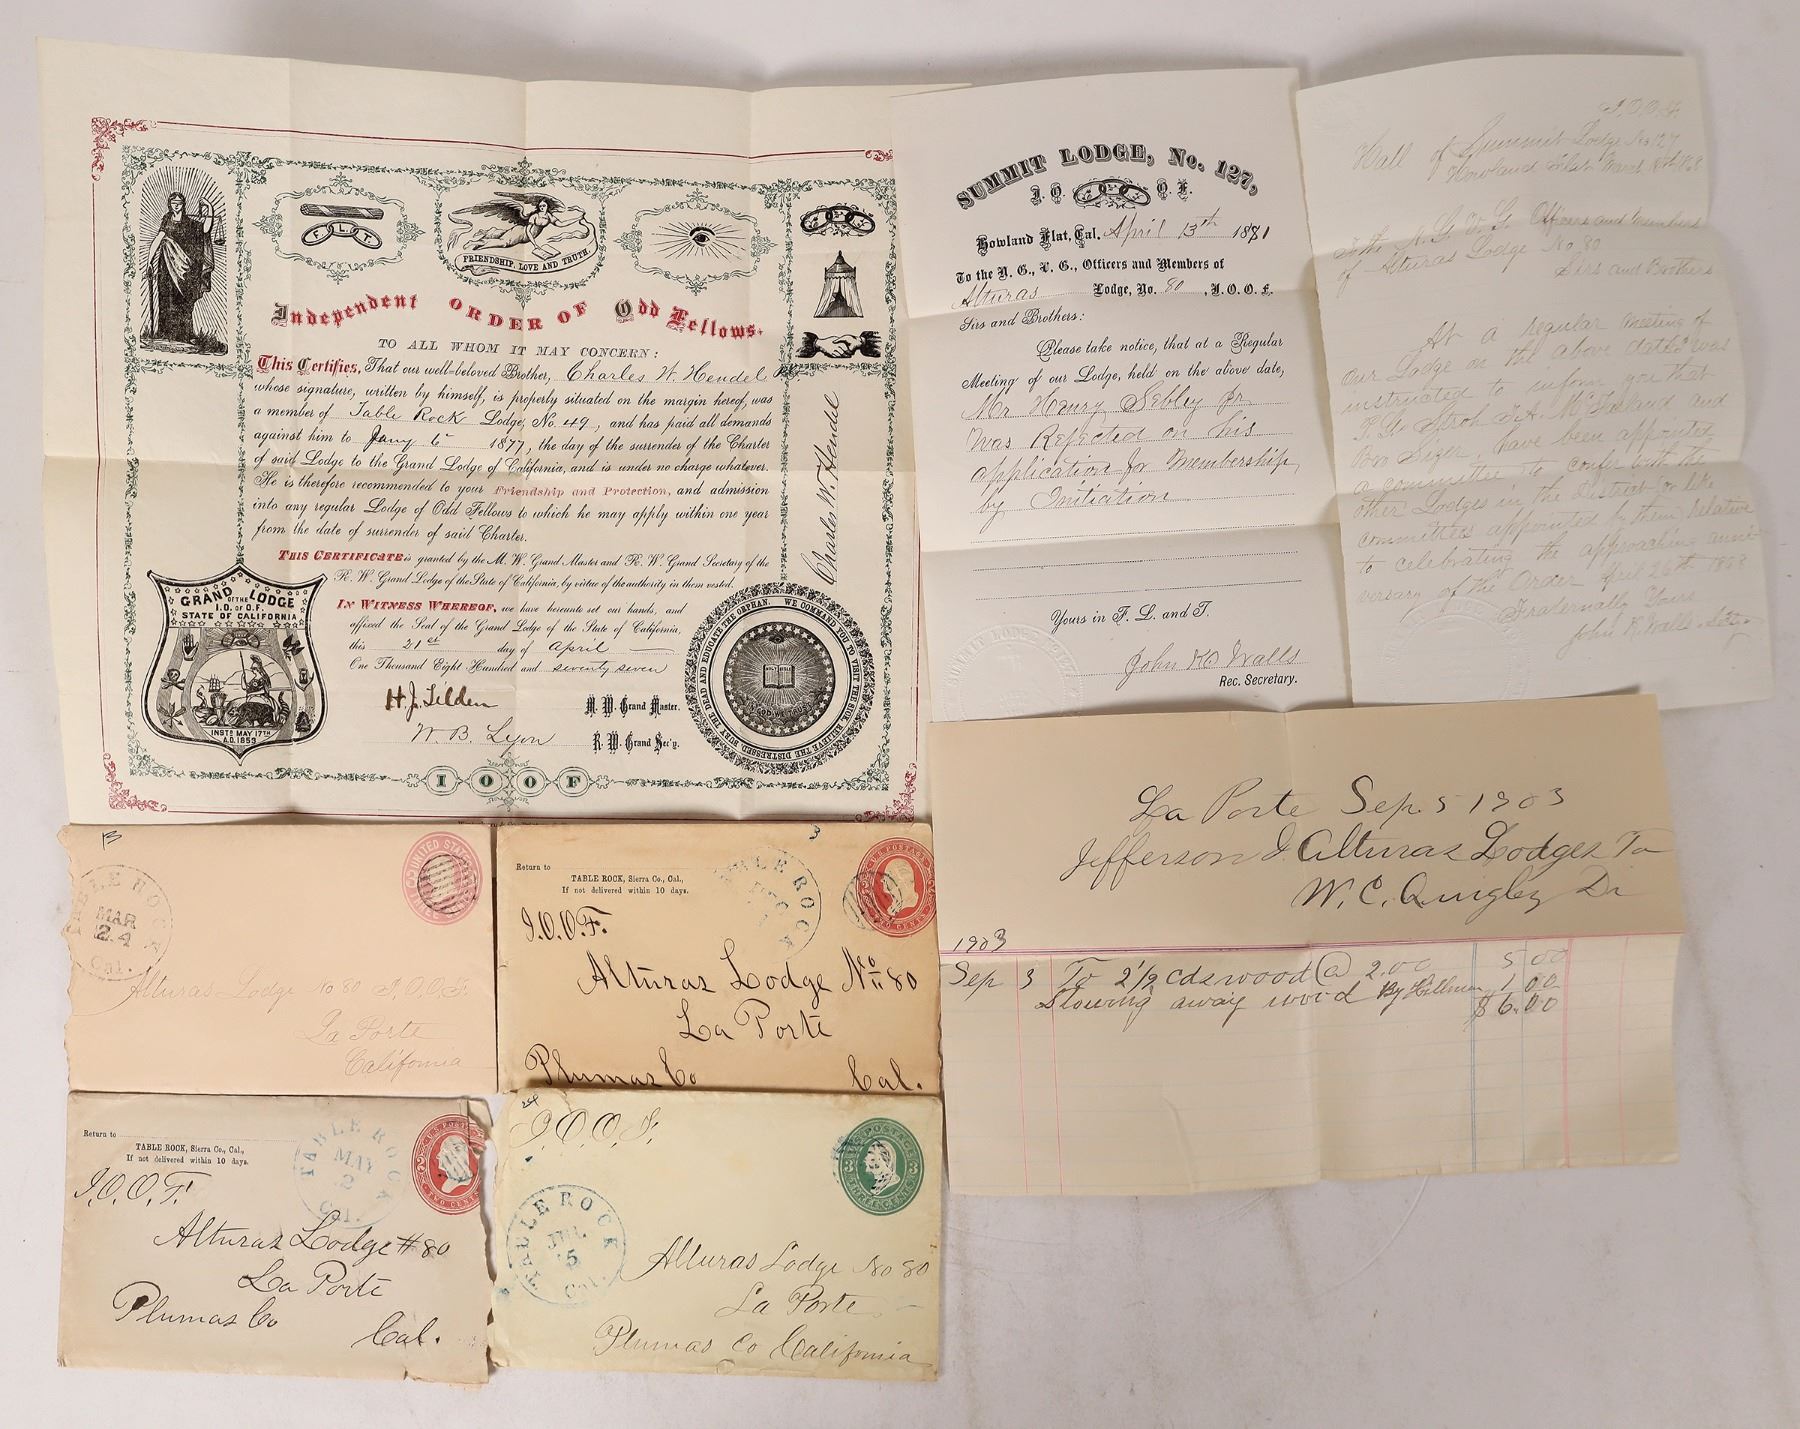 F. L. T.
FRIENDSHIP, LOVE AND TRUTH.
Independent ORDER OF Odd Fellows.
TO ALL WHOM IT MAY CONCERN:
This Certifies, That our well-beloved Brother, Charles W. Hendel
whose signature, written by himself, is properly situated on the margin hereof, was
a member of Table Rock Lodge, No. 49, and has paid all demands
against him to Jany 6th 1877, the day of the surrender of the Charter
of said Lodge to the Grand Lodge of California, and is under no charge whatever.
He is therefore recommended to your Friendship and Protection, and admission
into any regular Lodge of Odd Fellows to which he may apply within one year
from the date of surrender of said Charter.
THIS CERTIFICATE is granted by the M. W. Grand Master and R. W. Grand Secretary of the
R. W. Grand Lodge of the State of California, by virtue of the authority in them vested.
IN WITNESS WHEREOF, we have hereunto set our hands, and
affixed the Seal of the Grand Lodge of the State of California,
this 21st day of April
One Thousand Eight Hundred and seventy seven
H. J. Tilden M. W. Grand Master.
W. B. Lyon R. W. Grand Sec'y.
Charles W. Hendel
GRAND LODGE
OF THE
I. O. OF O. F.
STATE OF CALIFORNIA
INSTD MAY 17TH
A.D. 1853
WE COMMAND YOU TO VISIT THE SICK, RELIEVE THE DISTRESSED, BURY THE DEAD AND EDUCATE THE ORPHAN.
HOLY BIBLE
IN GOD WE TRUST
I O O F
SUMMIT LODGE, No. 127,
I. O. O. F.
Howland Flat, Cal. April 13th 1881
To the N. G., V. G., Officers and Members of
Alturas Lodge, No. 80, I. O. O. F.
Sirs and Brothers:
Please take notice, that at a Regular
Meeting of our Lodge, held on the above date,
Mr Henry Sebley Jr.
Was Rejected on his
application for Membership
by Initiation
Yours in F. L. and T.
John K Walls
Rec. Secretary.
I.O.O.F.
Hall of Summit Lodge No 127
Howland Flat March 18th 1868
To the N. G. V. G. Officers and Members
of Alturas Lodge No 80
Sirs and Brothers
At a regular meeting of
Our Lodge on the above date I was
instructed to inform you that
P. G. Stroh J. A. McFarland and
Bro Siger, have been appointed
a committee to confer with the
other Lodges in the District or like
committees appointed by them, relative
to celebrating the approaching anni-
versary of the Order April 26th 1868
Fraternally Yours
John K. Walls Secy
La Porte Sep. 5 1903
Jefferson & Alturas Lodges To
W. C. Quigley Dr
1903
Sep 3 To 2 1/2 cds wood @ 2.00 5 00
Stowing away wood By Hillman 1 00
$6.00
B
TABLE ROCK
MAR
24
Cal.
UNITED STATES
Alturas Lodge No 80 I.O.O.F.
La Porte
California
3
Return to
TABLE ROCK, Sierra Co., Cal.,
If not delivered within 10 days.
TABLE ROCK
U.S. POSTAGE
TWO CENTS
I.O.O.F.
Alturas Lodge No 80
La Porte
Plumas Co Cal.
Return to
TABLE ROCK, Sierra Co., Cal.,
If not delivered within 10 days.
TABLE ROCK
MAY
2
Cal.
U.S. POSTAGE
TWO CENTS
I.O.O.F.
Alturas Lodge #80
La Porte
Plumas Co
Cal.
24
I O O F.
TABLE ROCK
JUL
5
Cal.
U.S. POSTAGE
3 3
THREE CENTS
Alturas Lodge No 80
La Porte
Plumas Co California